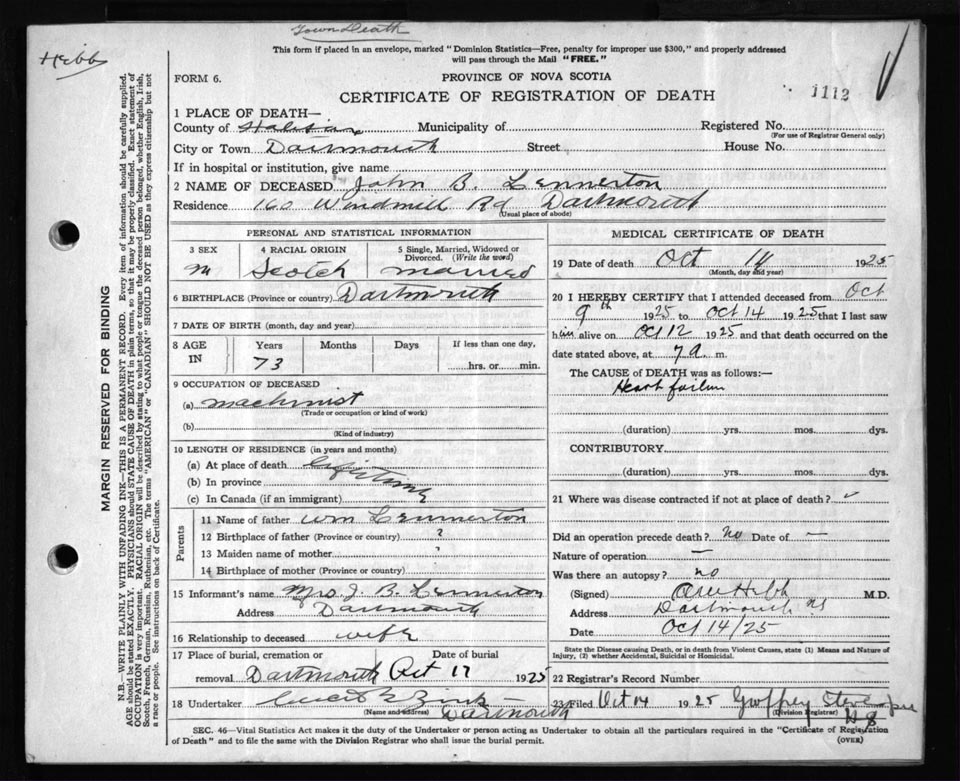 Town Death
Hebb
This form if placed in an envelope, marked "Dominion Statistics—Free, penalty for improper use $300," and properly addressed
will pass through the Mail "FREE."
FORM 6.
PROVINCE OF NOVA SCOTIA
CERTIFICATE OF REGISTRATION OF DEATH
1112
1 PLACE OF DEATH—
County of Halifax Municipality of Registered No.
(For use of Registrar General only)
City or Town Dartmouth Street House No.
If in hospital or institution, give name
2 NAME OF DECEASED John B. Lennerton
Residence 160 Windmill Rd Dartmouth
(Usual place of abode)
PERSONAL AND STATISTICAL INFORMATION
3 SEX 4 RACIAL ORIGIN 5 Single, Married, Widowed or
Divorced. (Write the word)
M Scotch married
6 BIRTHPLACE (Province or country) Dartmouth
7 DATE OF BIRTH (month, day and year)
8 AGE Years Months Days If less than one day,
IN 73 hrs. or min.
9 OCCUPATION OF DECEASED
(a) machinist
(Trade or occupation or kind of work)
(b)
(Kind of industry)
10 LENGTH OF RESIDENCE (in years and months)
(a) At place of death lifetime
(b) In province
(c) In Canada (if an immigrant)
Parents
11 Name of father Wm Lennerton
12 Birthplace of father (Province or country) ?
13 Maiden name of mother ?
14 Birthplace of mother (Province or country)
15 Informant's name Mrs. J. B. Lennerton
Address Dartmouth
16 Relationship to deceased wife
17 Place of burial, cremation or Date of burial
removal Dartmouth Oct 17 1925
18 Undertaker
(Name and address)
Dartmouth
MEDICAL CERTIFICATE OF DEATH
19 Date of death Oct 14 1925
(Month, day and year)
20 I HEREBY CERTIFY that I attended deceased from Oct
9th 1925 to Oct 14 1925 that I last saw
him alive on Oct 12 1925 and that death occurred on the
date stated above, at 7 a. m.
The CAUSE of DEATH was as follows:—
Heart failure
(duration) yrs. mos. dys.
CONTRIBUTORY
(duration) yrs. mos. dys.
21 Where was disease contracted if not at place of death?
Did an operation precede death? No Date of —
Nature of operation —
Was there an autopsy? no
(Signed) Hebb M.D.
Address Dartmouth NS
Date Oct 14/25
State the Disease causing Death, or in death from Violent Causes, state (1) Means and Nature of
Injury, (2) whether Accidental, Suicidal or Homicidal.
22 Registrar's Record Number
23 Filed Oct 14 1925 Geoffrey
(Division Registrar)
SEC. 46—Vital Statistics Act makes it the duty of the Undertaker or person acting as Undertaker to obtain all the particulars required in the "Certificate of Registration
of Death" and to file the same with the Division Registrar who shall issue the burial permit.
(OVER)
MARGIN RESERVED FOR BINDING
N.B.—WRITE PLAINLY WITH UNFADING INK—THIS IS A PERMANENT RECORD. Every item of information should be carefully supplied.
AGE should be stated EXACTLY. PHYSICIANS should STATE CAUSE OF DEATH in plain terms, so that it may be properly classified. Exact statement of
OCCUPATION is very important. RACIAL ORIGIN will be described by stating to what people or tongue the deceased person belonged, whether English, Irish,
Scotch, French, German, Russian, Ruthenian, etc. The terms "AMERICAN" or "CANADIAN" SHOULD NOT BE USED as they express citizenship but not
a race or people. See instructions on back of Certificate.